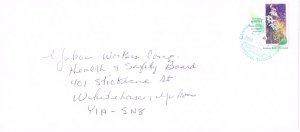 Yukon Workers Comp.
Health & Safety Board
401 Strickland St
Whitehorse, Yukon
Y1A-5N8